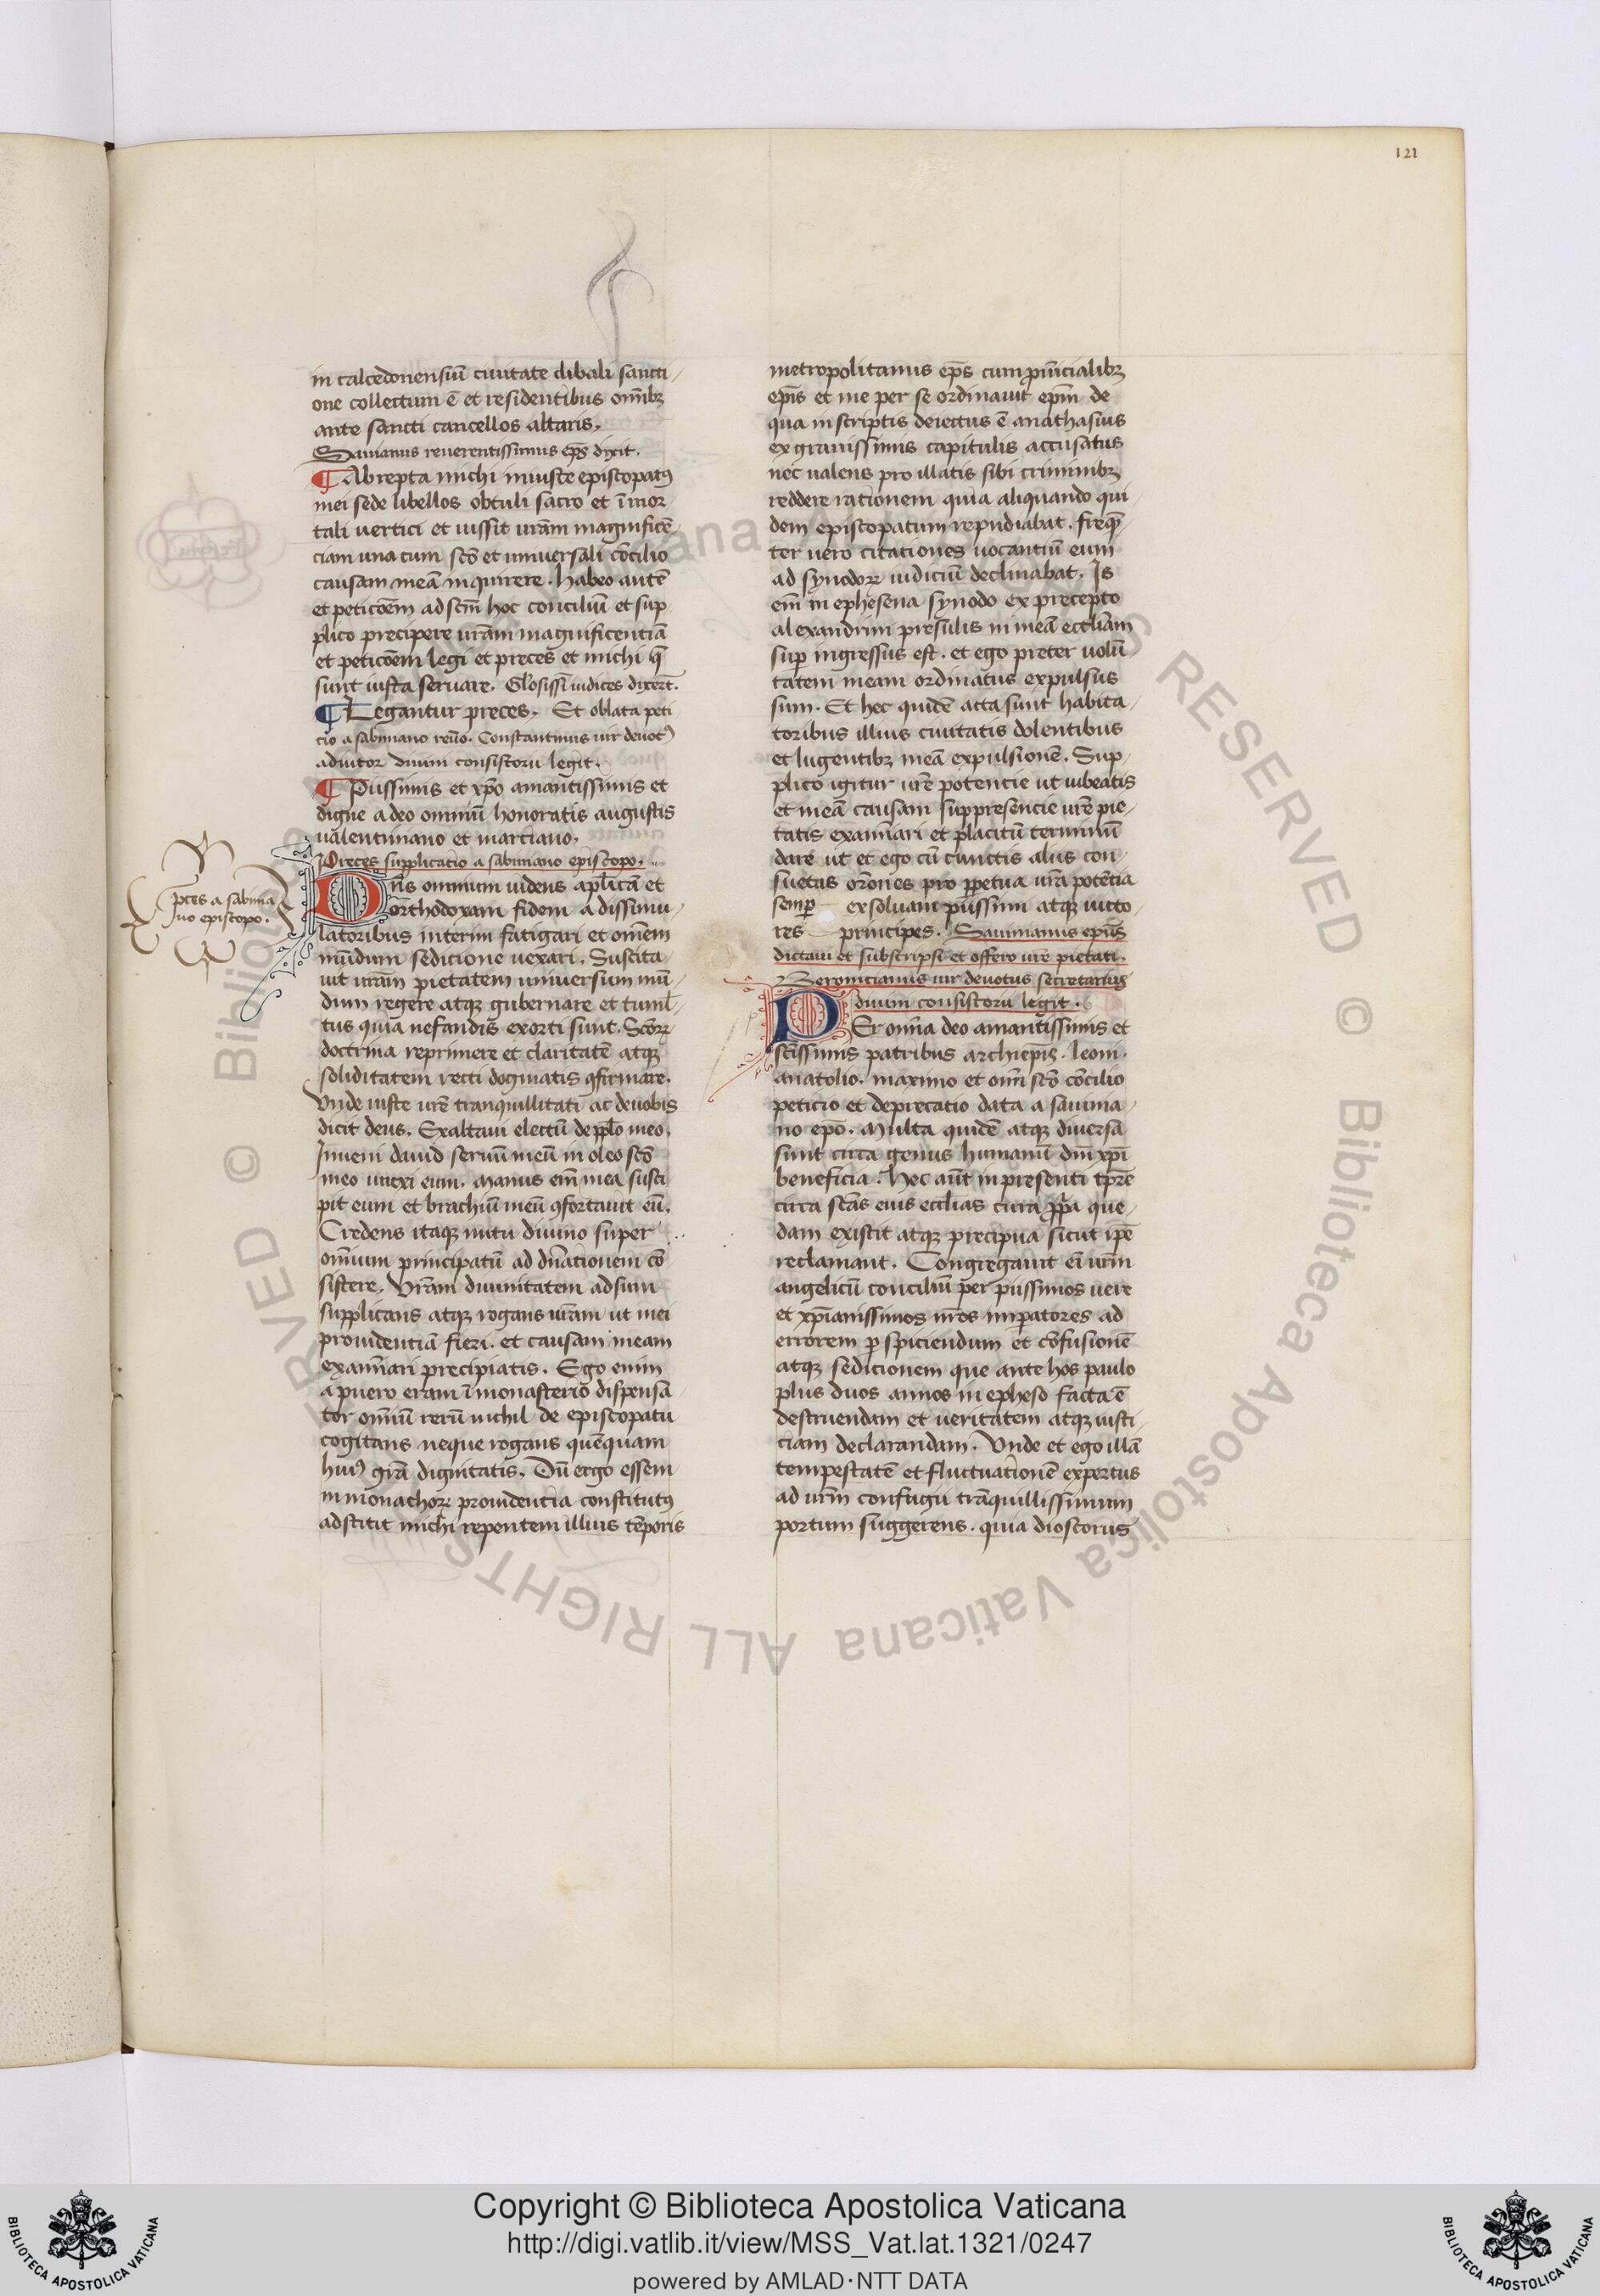 121
in calcedonensiū ciuitate dibali sancti
one collectum ē et residentibus om̄ibꝫ
ante sancti cancellos altaris.
Sauianus reuerentissimus ep̄s dixit.
¶ Abrepta michi iniuste episcopatꝰ
mei sede libellos obtuli sacro et īmor
tali uertici et iussit ur̄am magnificē
ciam una cum sc̄o et uniuersali cōcilio
causam meā inquirere. habeo autē
et peticōem ad sc̄m hoc conciliū et sup
plico precipere ur̄am magnificentiā
et peticōem legi et preces et michi q̄
sunt iusta seruare. Glōsissi iudices dixert̄.
¶ Legantur preces. Et oblata peti
cio a sabiniano reuō. Constantinus uir deuotꝰ
adiutor diuini consistorii legit.
¶ Piissimis et xp̄o amantissimis et
digne a deo omniū honoratis augustis
ualentiniano et marciano.
Preces supplicatio a sabiniano episcopo.
p̄ces a sabinia
no episcopo.
Dn̄s omnium uidens ap̄licā et
orthodoxam fidem a dissimu
latoribus interim fatigari et om̄em
mūdum sedicione uexari. Suscita
uit ur̄am pietatem uniuersum mū
dum regere atqꝫ gubernare et tumul
tus quia nefandis exorti sunt. Sc̄orꝝ
doctrina reprimere et claritatē atqꝫ
soliditatem recti dogmatis ꝯfirmare.
Vnde iuste ur̄e tranquillitati ac deuobis
dicit deus. Exaltaui electū de pp̄lo meo.
Inueni dauid seruū meū in oleo sc̄o
meo unxi eum. Manus em̄ mea susci
pit eum et brachiū meū ꝯfortauit eū.
Credens itaqꝫ nutu diuino super
om̄ium principatū ad dn̄ationem cō
sistere. Vr̄am diuinitatem adsum
supplicans atqꝫ rogans ur̄am ut mei
prouidentiā fieri. et causam meam
exam̄iari precipiatis. Ego enim
a puero eram ī monasterio dispensā
tor om̄iū rerū nichil de episcopatu
cogitans neque rogans quēquam
huiꝰ gr̄a dignitatis. Dū ergo essem
in monachorꝝ prouidentia constitutꝰ
adstitit michi repentem illius tēporis
metropolitanus ep̄s cum ꝓuīcialibꝫ
ep̄is et me per se ordinauit ep̄m de
qua in scriptis deiectus ē anathasius
ex grauissimis capitulis accusatus
nec ualens pro illatis sibi criminibꝫ
reddere rationem quia aliquando qui
dem episcopatum repudiabat. freqꝫ̄
ter uero citationes uocantiū eum
ad synodorꝝ iudiciū declinabat. Is
em̄ in ephesena synodo ex precepto
alexandrini presulis in meā eccl̄iam
suꝑ ingressus est. et ego preter uolū
tatem meam ordinatus expulsus
sum. Et hec quidē acta sunt habita
toribus illius ciuitatis dolentibus
et lugentibꝫ meā expulsionē. Sup
plico igitur ur̄e potencie ut iubeatis
et meā causam sup presencie ur̄e pie
tatis exam̄iari et placitū terminū
dare ut et ego cū cunctis aliis con
suetas orōnes pro ꝑpetua ur̄a potētia
semꝑ exsoluam piissimi atqꝫ uicto
res principes. Sauinianus ep̄us
dictaui et subscripsi et offero ur̄e pietati.
Beronicianus uir deuotus secretarius
diuini consistorii legit.
Per om̄ia deo amantissimis et
sc̄issimis patribus archiep̄is. leoni.
anatolio. maximo et om̄i sc̄o cōcilio
peticio et deprecatio data a sauinia
no ep̄o. Multa quidē atqꝫ diuersa
sunt circa genus humanū dn̄i xp̄i
beneficia. hec aūt in presenti tp̄re
circa sc̄as eius eccl̄ias cura ꝓp̄a que
dam existit atqꝫ precipua sicut ip̄e
reclamant. Congregauit em̄ ur̄m
angelicū conciliū per piissimos uere
et xp̄ianissimos nr̄os imꝑatores ad
errorem ꝑspiciendum et cōfusionē
atqꝫ sedicionem que ante hos paulo
plus duos annos in epheso facta ē
destruendam et ueritatem atqꝫ iusti
ciam declarandam. Vnde et ego illā
tempestatē et fluctuationē expertus
ad ur̄m confugii trāquillissimum
portum suggerens. quia dioscorus
Copyright © Biblioteca Apostolica Vaticana
http://digi.vatlib.it/view/MSS_Vat.lat.1321/0247
powered by AMLAD·NTT DATA
BIBLIOTECA APOSTOLICA VATICANA
BIBLIOTECA APOSTOLICA VATICANA